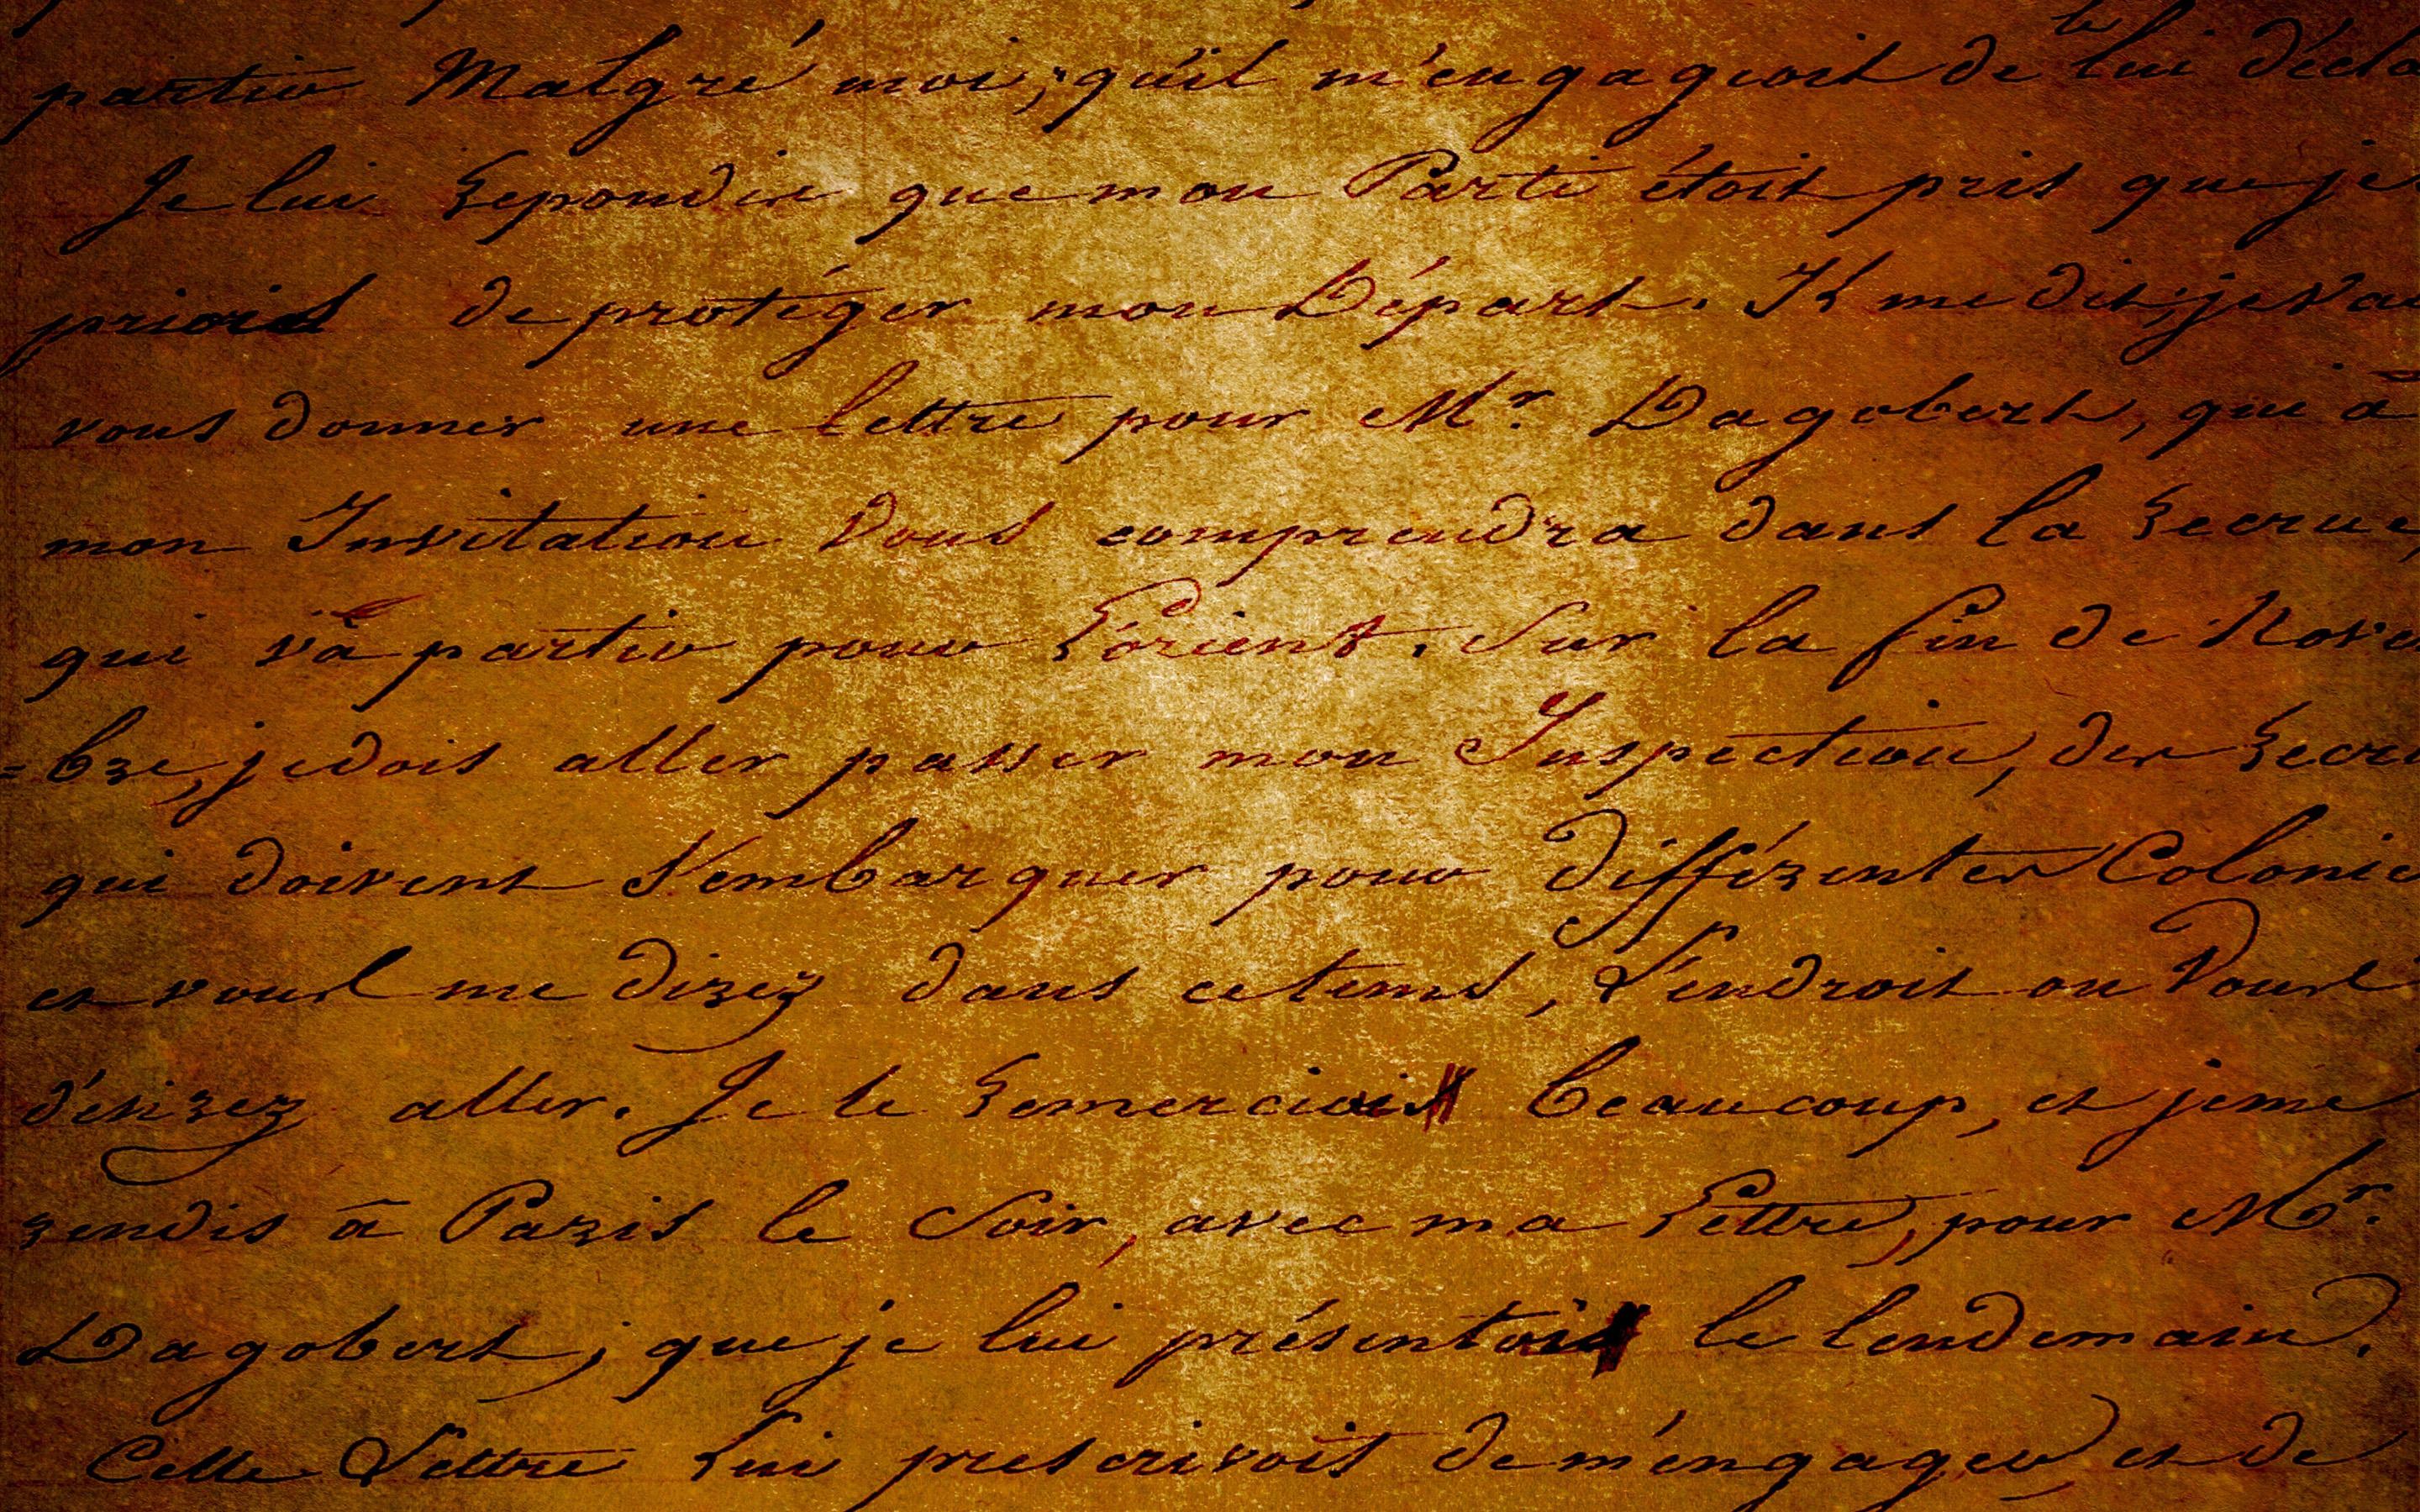 partir Malgré moi, qu'il m'engageoit de le lui décla
Je lui repondis que mon Parti étoit pris que je
priois de protéger mon Départ. Il me dit; je va
vous donner une lettre pour Mr. Dagobert, qui à
mon Invitation vous comprendra dans la recrue,
qui va partir pour L'orient. Sur la fin de Nove
=bre, je dois aller passer mon Inspection, des recru
qui doivent s'embarquer pour différentes Colonie
et vous me direz dans ce tems, l'endroit ou vous
désirez aller. Je le remerciois beaucoup, et je me
rendis à Paris le Soir, avec ma Lettre, pour Mr.
Dagobert, que je lui présentois le lendemain.
Cette Lettre lui prescrivoit de m'engager et de